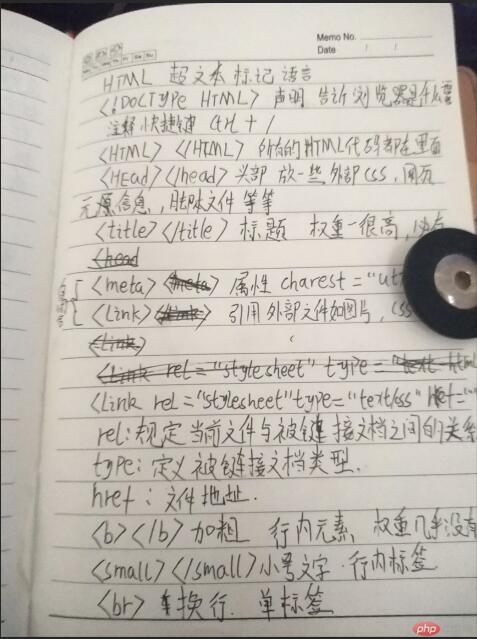 Memo No.
Date / /
Mo Tu We Th Fr Sa Su
HTML 超文本标记语言
<!DOCTYPE HTML> 声明 告诉浏览器是什么语言
注解快捷键 ctrl + /
<HTML> </HTML> 所有的HTML代码都在里面
<HEad> </head> 头部 放一些外部css,网页
元原信息,脚本文件 等等
<title> </title> 标题 权重一很高,
<head
<meta> <meta> 属性 charest="ut
<Link> <link> 引用外部文件如图片,css
<Link>
<link rel="stylesheet" type="text html
<Link rel="stylesheet" type="text/css" href="
rel:规定当前文件与被链接文档之间的关系
type:定义被链接文档类型.
href:文件地址.
<b> </b> 加粗 行内元素 权重几乎没有
<small> </small> 小号文字.行内标签
<br> 换行. 单标签
php